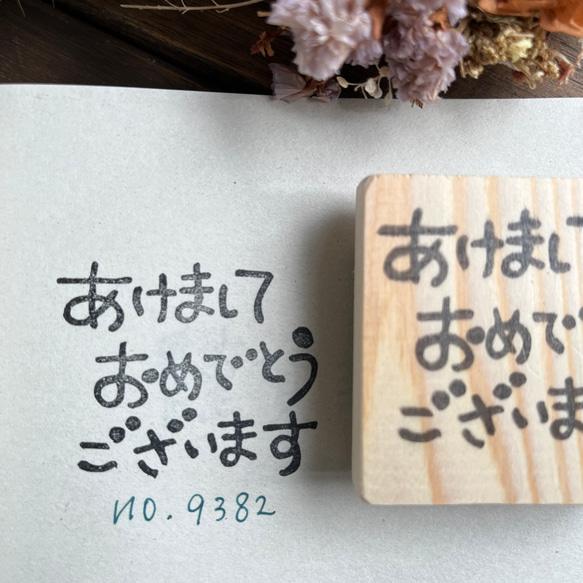 あけまして
おめでとう
ございます
no. 9382
あけまし
おめで
ございま